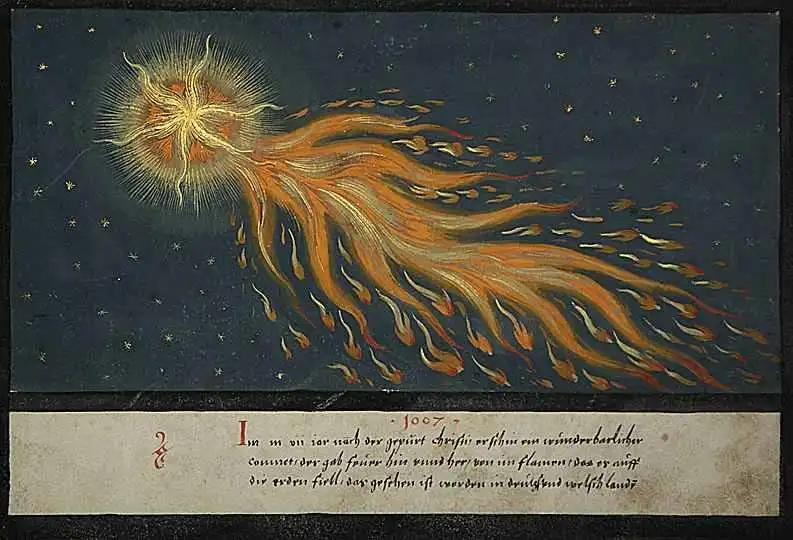 · 1007 ·
Im m vii iar nach der gepurt Christi erschin ein wunderbarlicher
comet, der gab feuer hin vnnd her, von im flamen, das er auff
die erden fiell, das gesehen ist worden in deutsch vnd welsch landṽ